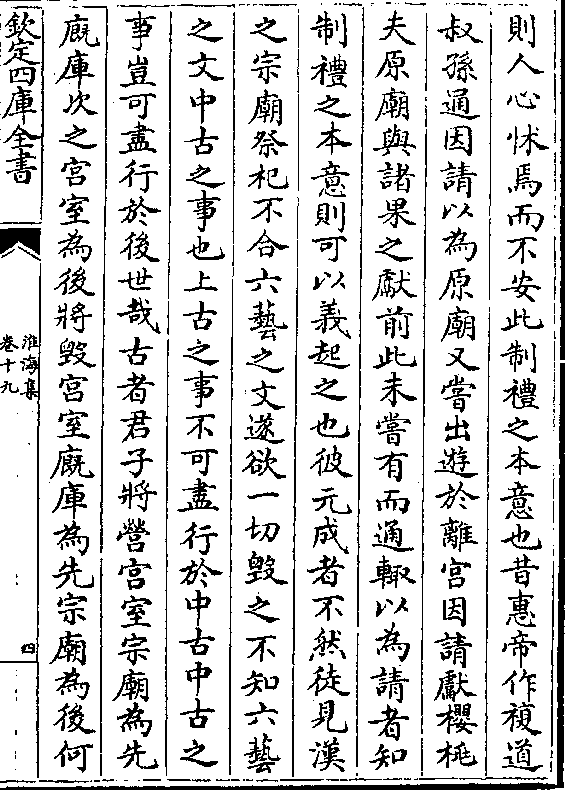 則人心怵焉而不安此制禮之本意也昔惠帝作複道
叔孫通因請以為原廟又嘗出遊於離宮因請獻櫻桃
夫原廟與諸果之獻前此未嘗有而通輙以為請者知
制禮之本意則可以義起之也彼元成者不然徒見漢
之宗廟祭祀不合六藝之文遂欲一切毀之不知六藝
之文中古之事也上古之事不可盡行於中古中古之
事豈可盡行於後世哉古者君子將營宮室宗廟為先
廐庫次之宮室為後將毀宮室廐庫為先宗廟為後何
欽定四庫全書
淮海集
卷十九
四